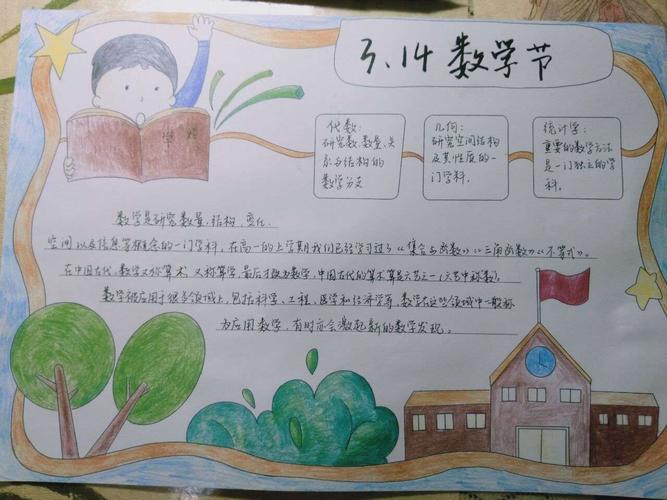 3.14 数学节
代数:
研究数、数量、关
系与结构的
数学分支
几何:
研究空间结构
及其性质的一
门学科.
统计学:
重要的数学方法
是一门独立的学
科.
数学是研究数量、结构、变化、
空间以及信息等概念的一门学科,在高一的上学期我们已经学习过了《集合与函数》《三角函数》《不等式》。
在中国古代,数学又称算术,又称算学,最后才改为数学,中国古代的算术是六艺之一(六艺中称数).
数学被应用于很多领域上,包括科学、工程、医学和经济学等,数学在这些领域中一般称
为应用数学,有时亦会激起新的数学发现。